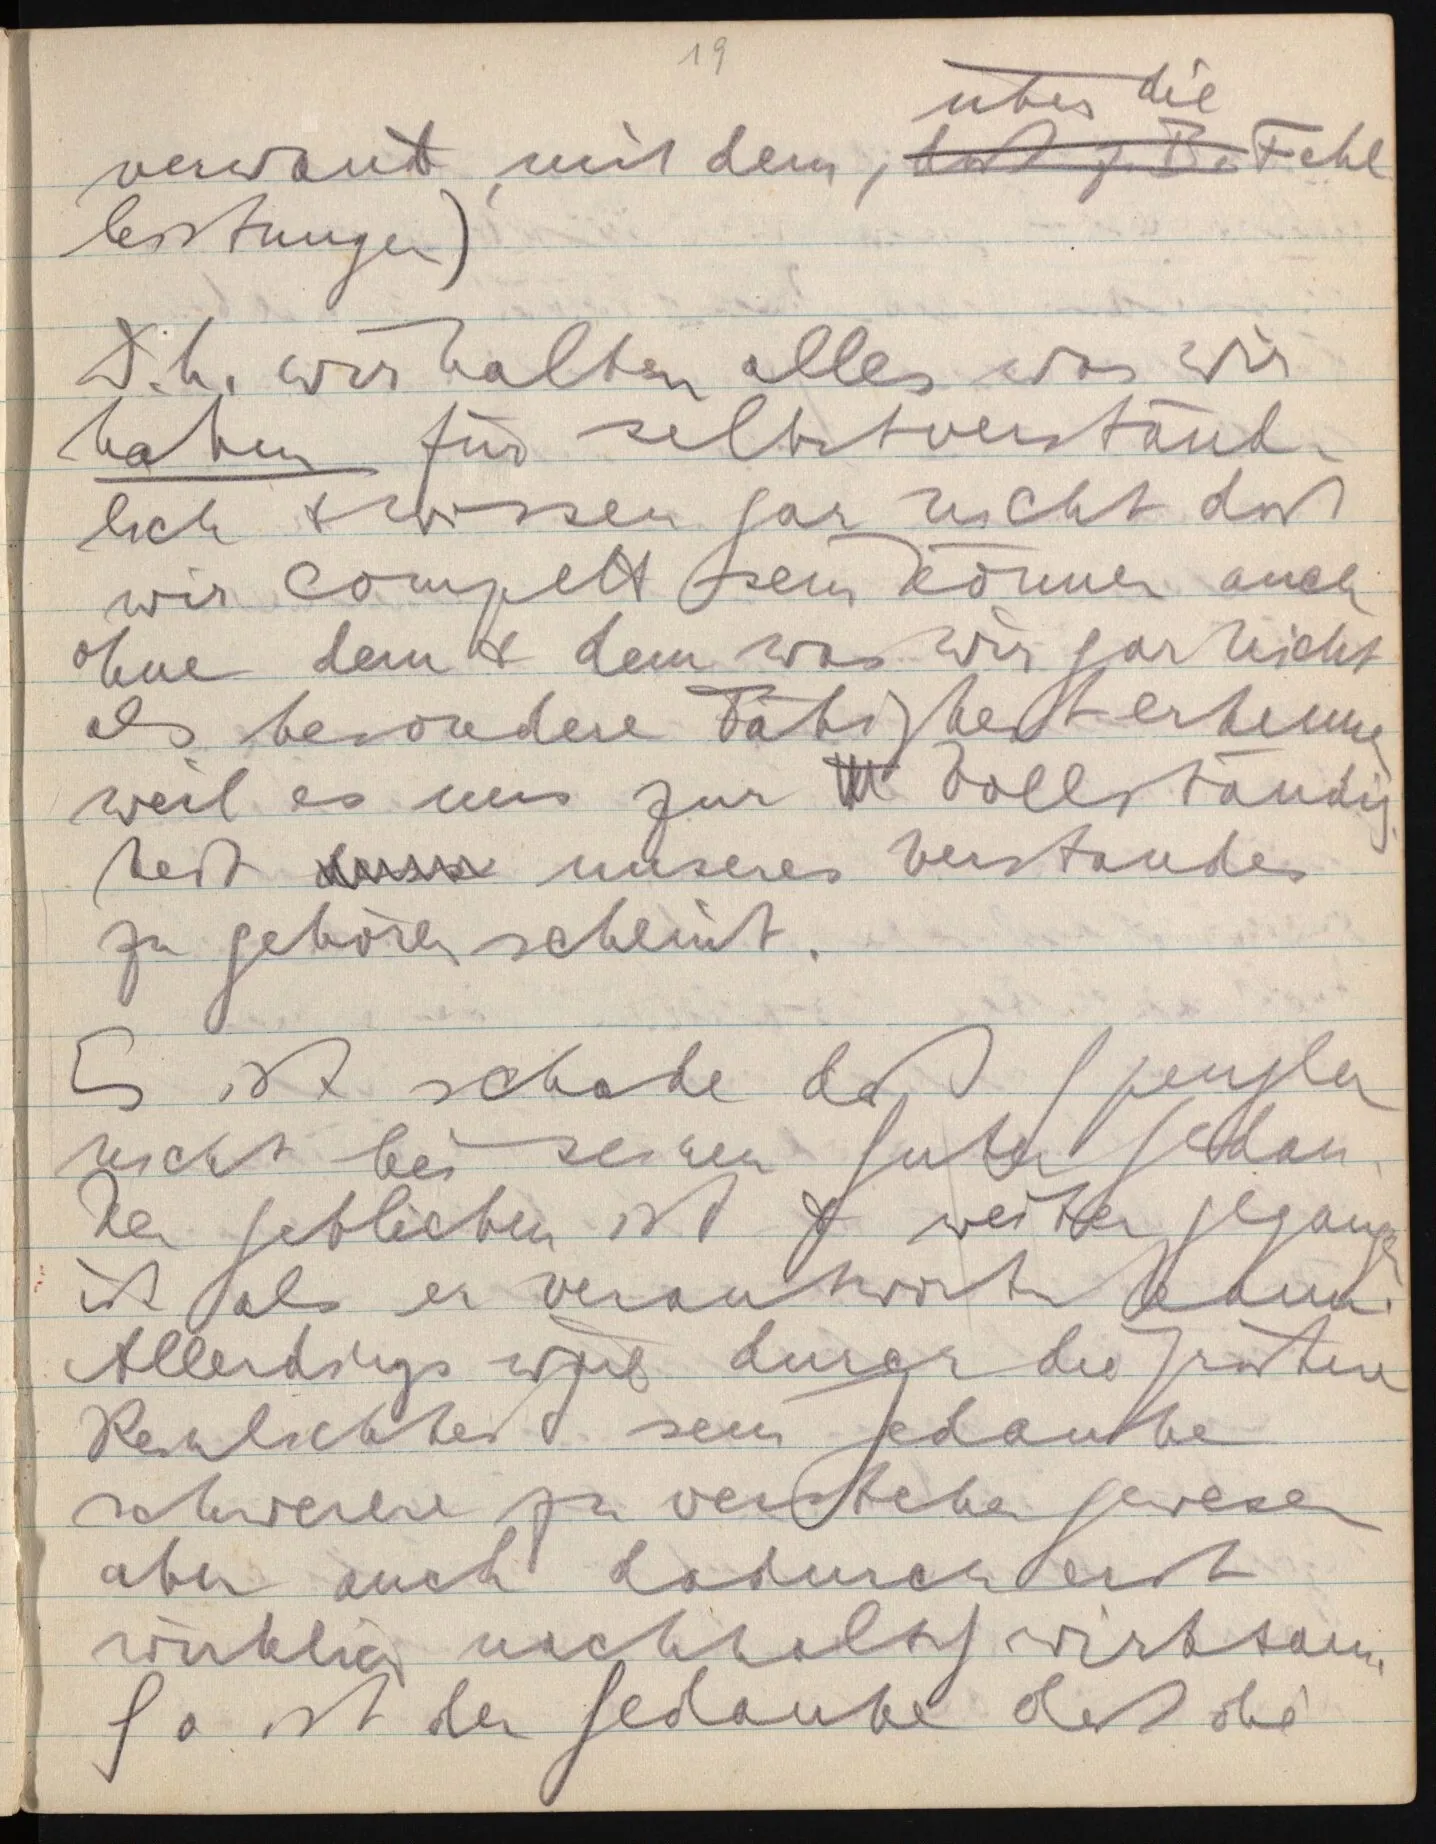 19
über die
verwant, mit dem, daß z. B. Fehl
leistungen)
D.h. wir halten alles was wir
haben für selbstverständ-
lich & wissen gar nicht daß
wir complett sein können auch
ohne dem & dem was wir gar nicht
als besondere Fähigkeit erkennen
weil es uns zur Vollständig-
keit unseres Verstandes
zu gehören scheint.
Es ist schade daß Spengler
nicht bei seinen Guten Gedan-
ken geblieben ist & weiter gegangen
ist als er verantworten kann.
Allerdings wäre durch die größere
Reinlichkeit sein Gedanke
schwerer zu verstehen gewesen
aber auch dadurch erst
wirklich nachhaltig wirksam.
So ist der Gedanke daß die